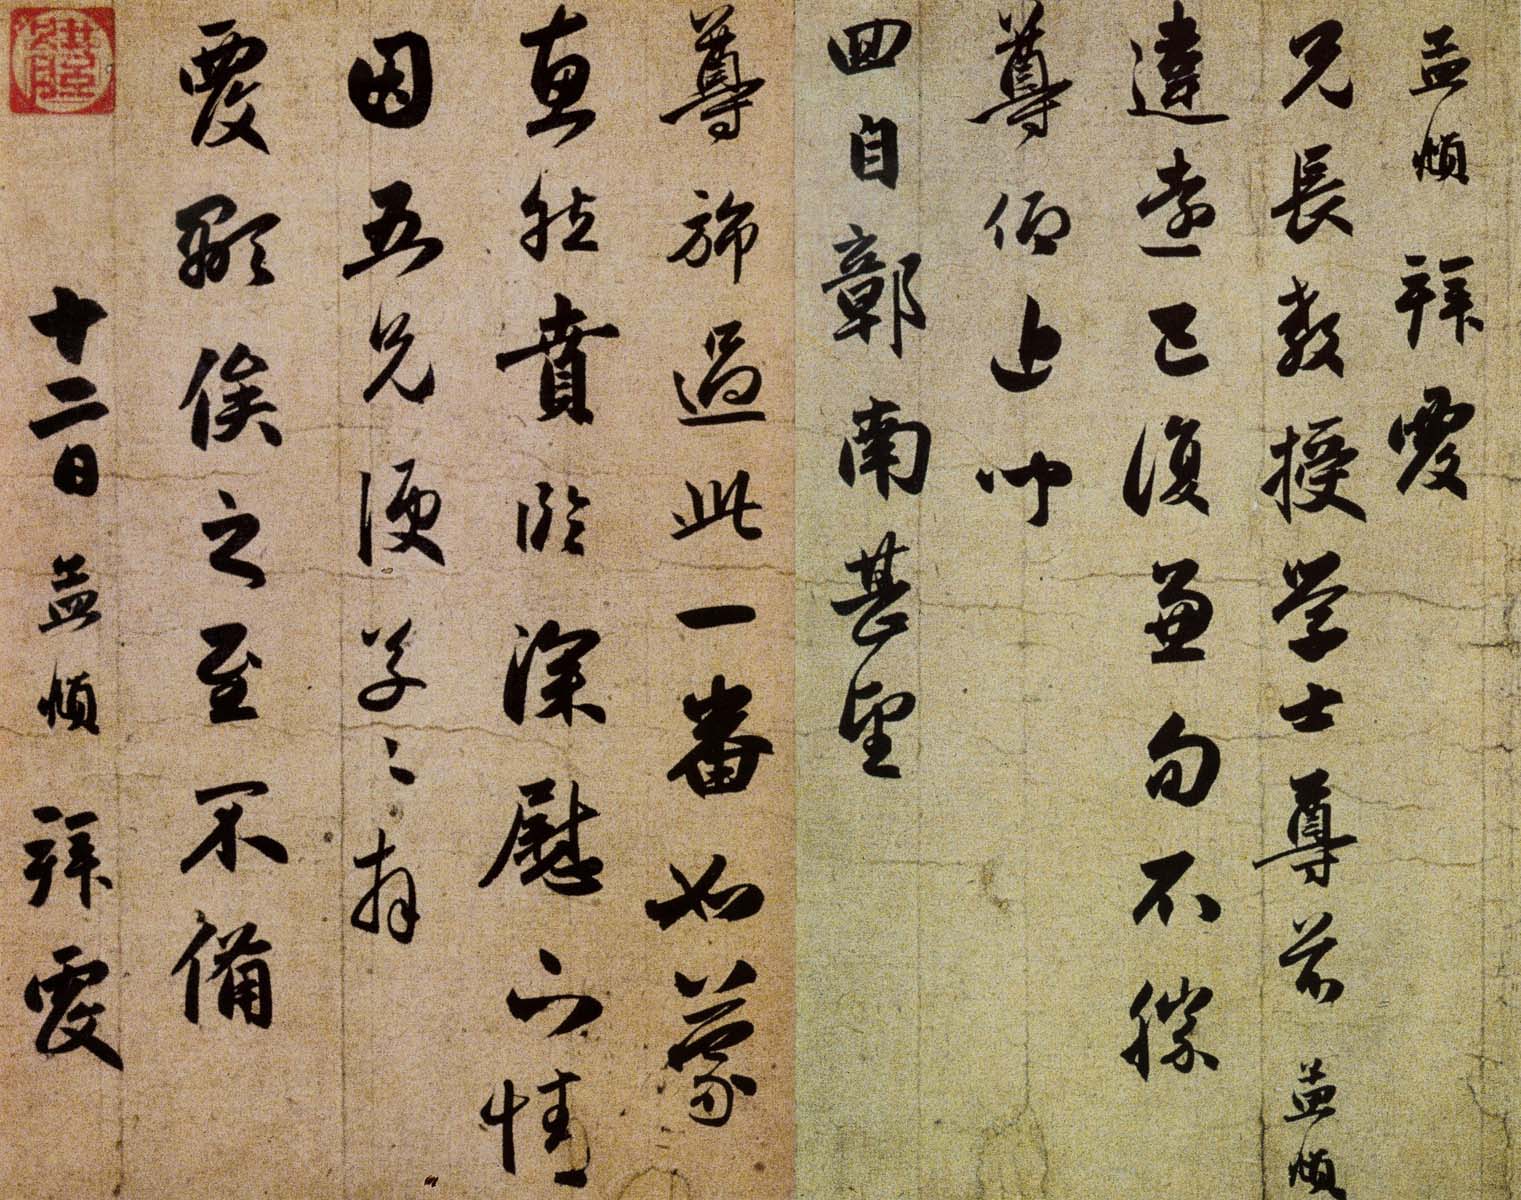 孟頫拜覆
兄長教授學士尊前孟頫
違遠已復兼旬不勝
尊仰
回自鄣南甚望
尊旆過此一番如蒙
惠然賁臨深慰下情
因五兄便草〻拜
覆顒俟之至不備
十二日孟頫拜覆